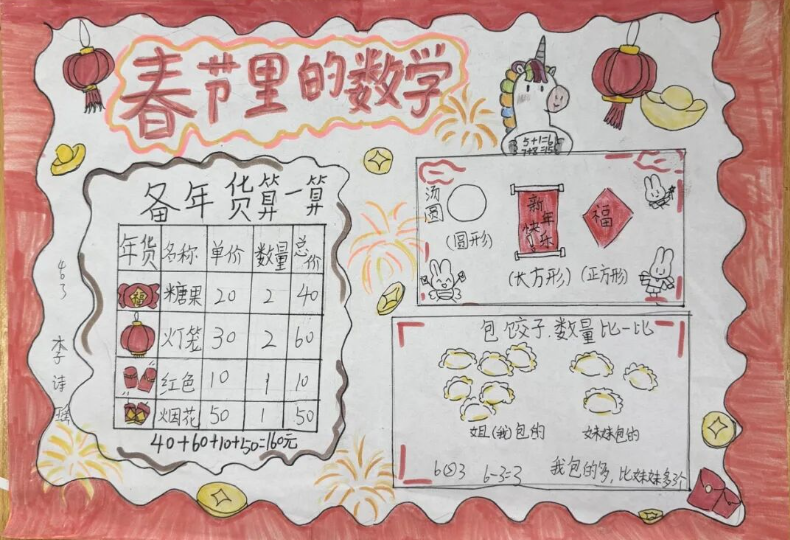 春节里的数学
5+1=6
7+8=15
备年货算一算
年货 名称 单价 数量 总价
福 糖果 20 2 40
灯笼 30 2 60
红色 10 1 10
烟花 50 1 50
40+60+10+50=160元
463
李诗
汤圆
(圆形)
新年快乐
(长方形)
福
(正方形)
包饺子.数量比一比
姐(我)包的
妹妹包的
6>3
6-3=3
我包的多,比妹妹多3个